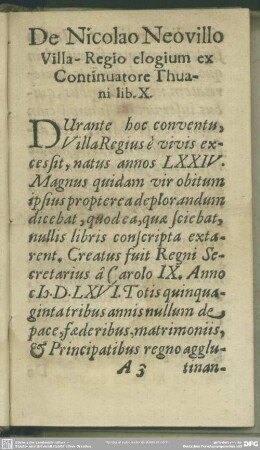 De Nicolao Neovillo
Villa-Regio elogium ex
Continuatore Thua-
ni lib. X.
DUrante hoc conventu,
VillaRegius è vivis ex-
cessit, natus annos LXXIV.
Magnus quidam vir obitum
ipsius propterea deplorandum
dicebat, quod ea, quæ sciebat,
nullis libris conscripta exta-
rent. Creatus fuit Regni Se-
cretarius â Carolo IX. Anno
cIↃ.IↃ.LXVI. Totis quinqua-
ginta tribus annis nullum de
pace, fæderibus, matrimoniis,
& Principatibus regno agglu-
A 3 tinan-
DFG